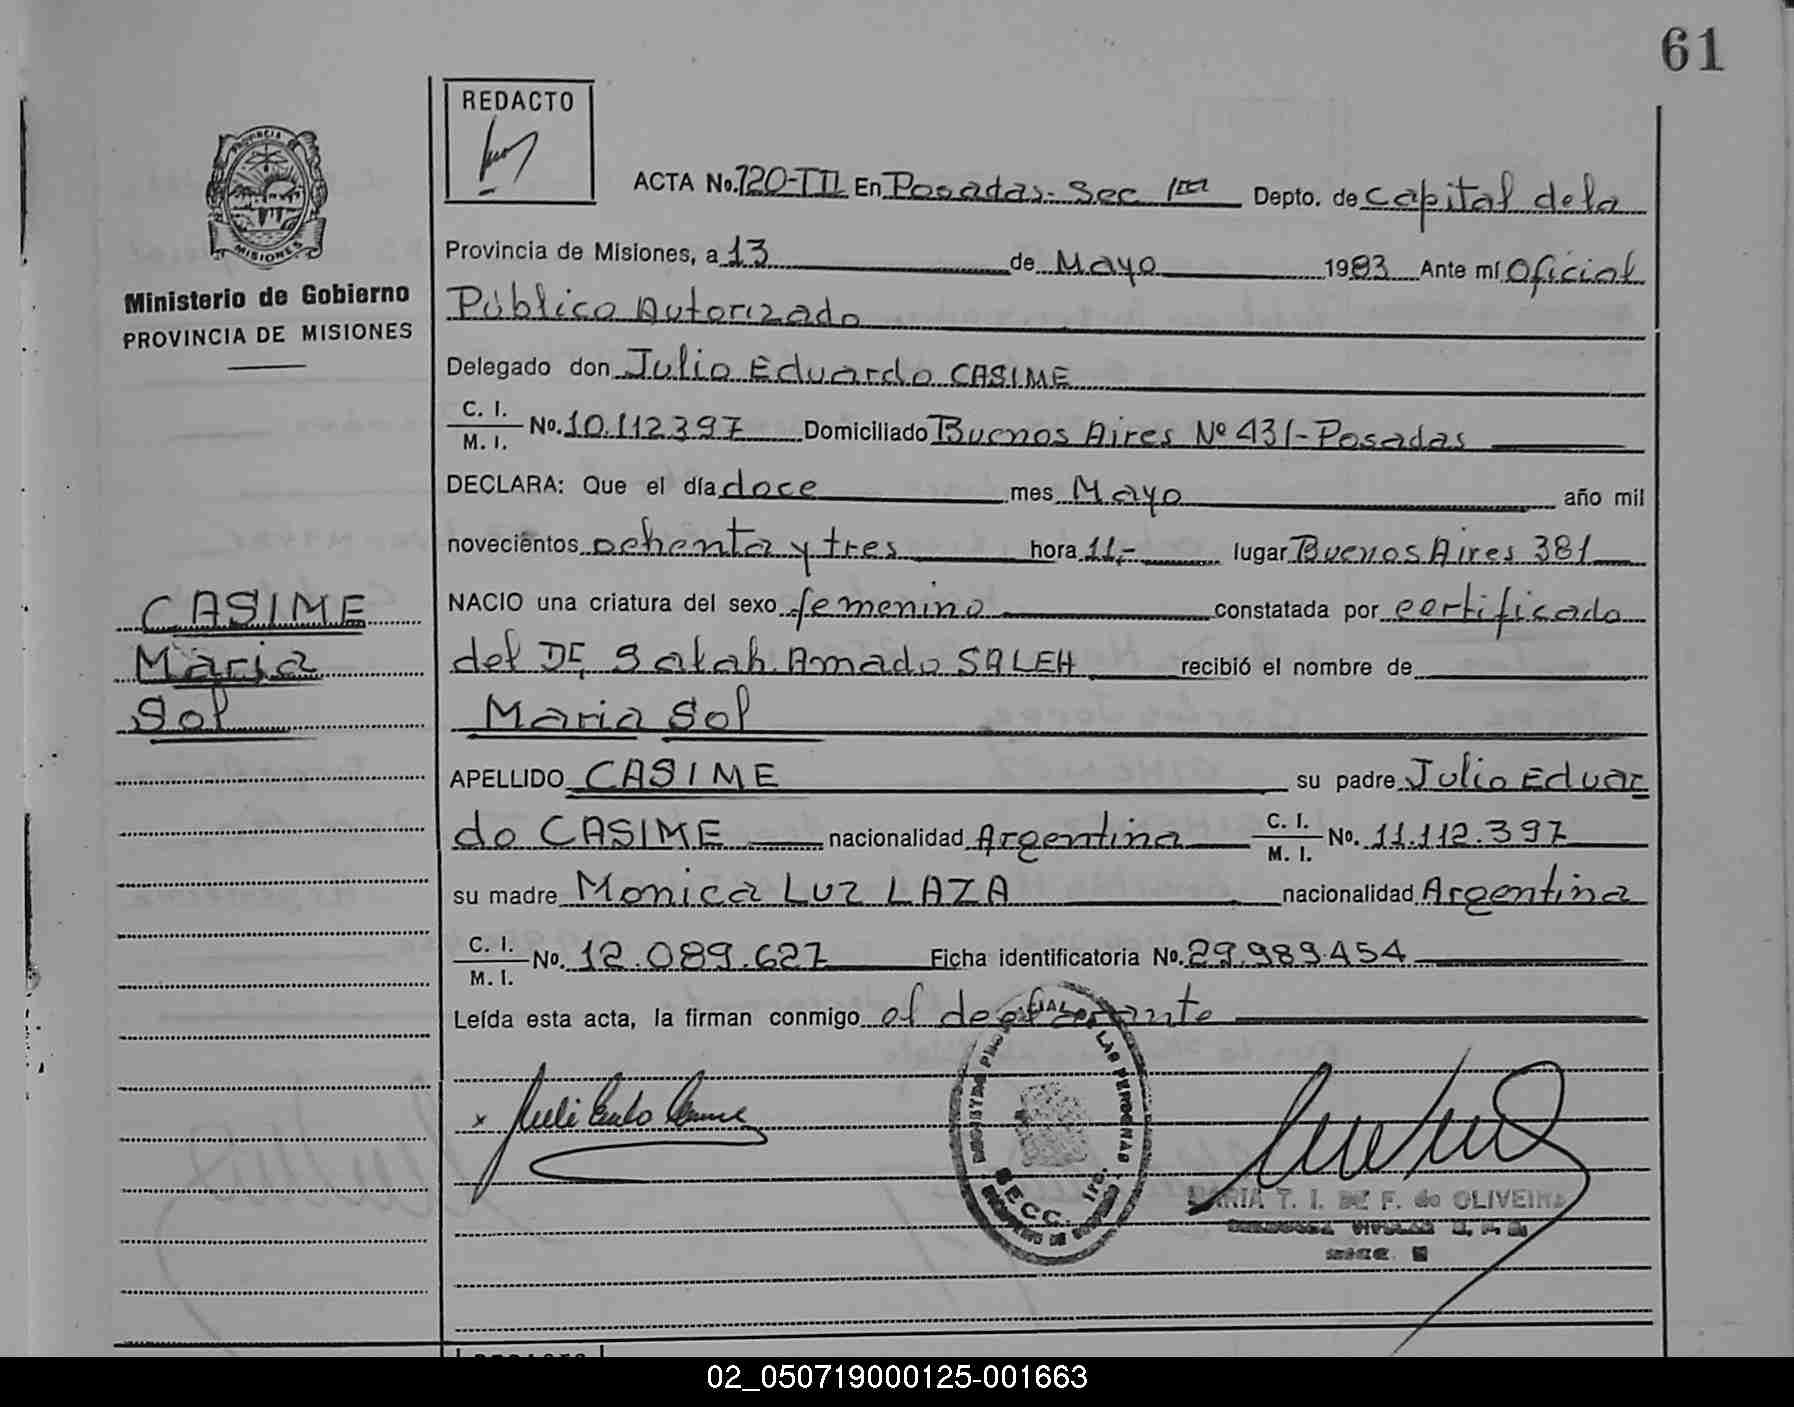 61
REDACTO
PROVINCIA DE
MISIONES
Ministerio de Gobierno
PROVINCIA DE MISIONES
ACTA No. 720-TII En Posadas- Sec 1ra Depto. de Capital de la
Provincia de Misiones, a 13 de Mayo 1983 Ante mí Oficial
Público Autorizado
Delegado don Julio Eduardo CASIME
C. I.
M. I. No. 10.112.397 Domiciliado Buenos Aires Nº 431- Posadas
DECLARA: Que el día doce mes Mayo año mil
novecientos ochenta y tres hora 11,- lugar Buenos Aires 381
NACIO una criatura del sexo femenino constatada por certificado
del Dr. Salah Amado SALEH recibió el nombre de
Maria Sol
APELLIDO CASIME su padre Julio Eduar
do CASIME nacionalidad Argentina C. I.
M. I. No. 11.112.397
su madre Monica Luz LAZA nacionalidad Argentina
C. I.
M. I. No. 12.089.627 Ficha identificatoria No. 29.989.454
Leída esta acta, la firman conmigo el declarante
CASIME
Maria
Sol
LAS PERSONAS
SECC. 1ra.
MARIA T. I. DE F. de OLIVEIRA
02_050719000125-001663